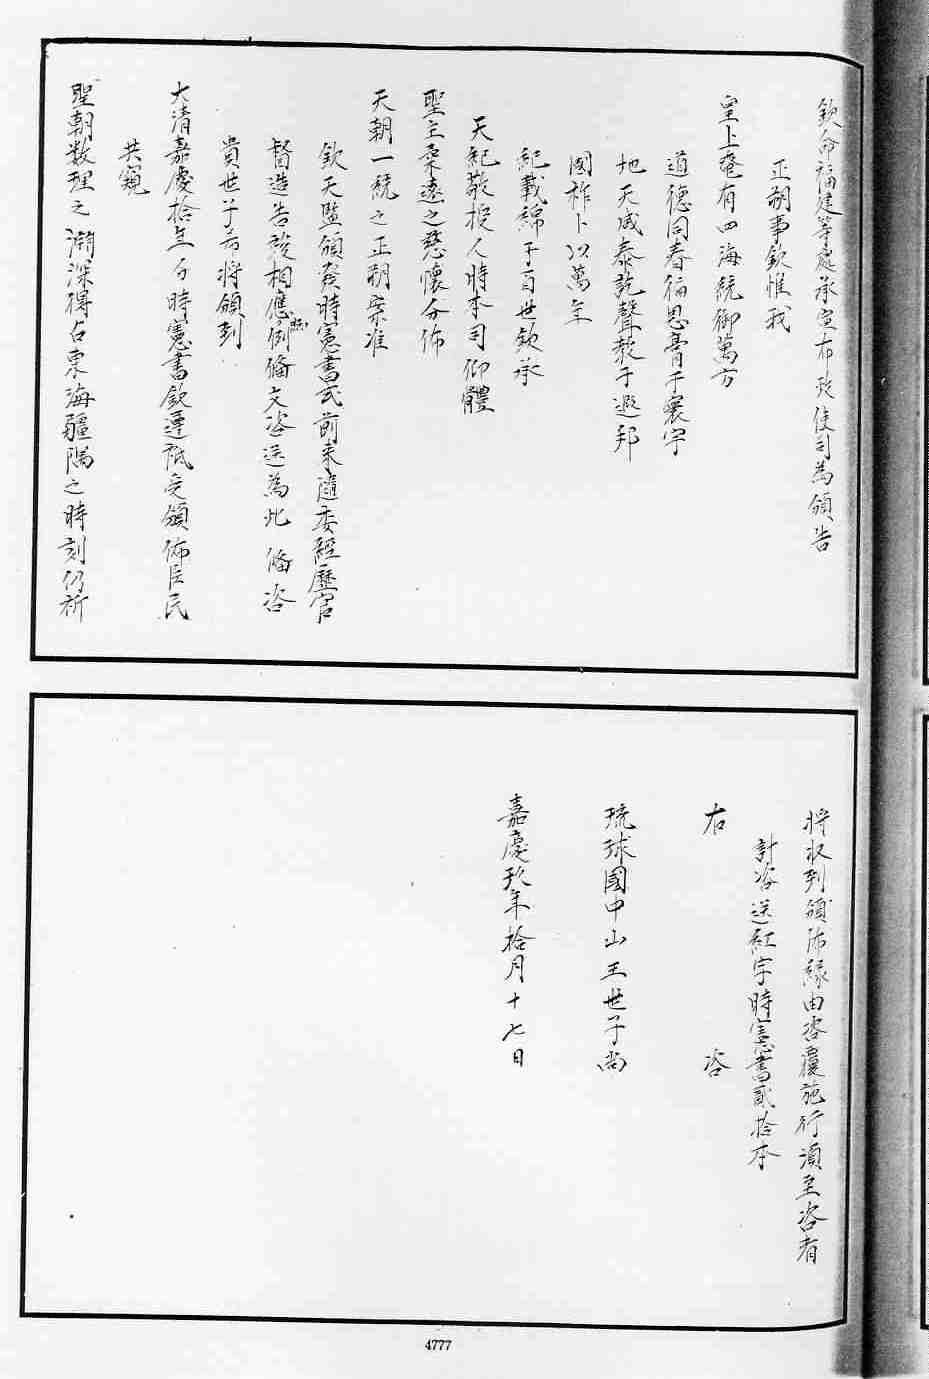 欽命福建等處承宣布政使司為頒告
正朔事欽惟我
皇上奄有四海統御萬方
道德同春福恩膏于寰宇
地天咸泰訖聲教于遐邦
國祚卜以萬年
紀載綿于百世欽承
天紀敬授人時本司仰體
聖主柔遠之慈懷分佈
天朝一統之正朔案准
欽天監頒發時憲書式前來隨委經歷官
督造告竣相應照例俻文咨送為此俻咨
貴世子希將頒到
大清嘉慶拾年分時憲書欽遵祗受頒佈臣民
共窺
聖朝数理之淵深得占東海疆隅之時刻仍祈
將収到頒佈緣由咨覆施行湏至咨者
計咨送紅字時憲書貳拾本
右咨
琉球國中山王世子尚
嘉慶玖年拾月十七日
4777